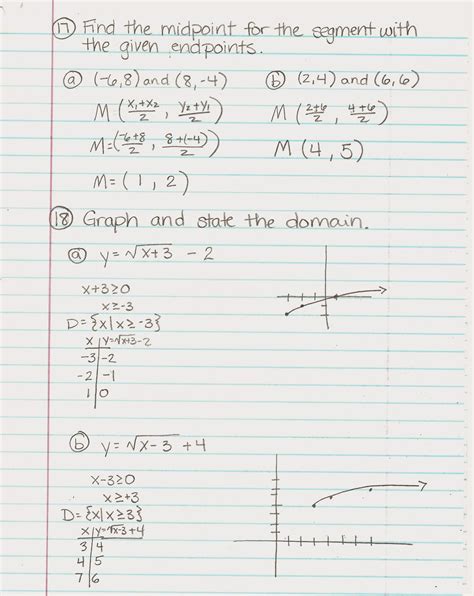 17 Find the midpoint for the segment with
the given endpoints.
a (-6,8) and (8,-4)
M ( x₁+x₂/2 , y₂+y₁/2 )
M=( -6+8/2 , 8+(-4)/2 )
M=( 1 , 2 )
b (2,4) and (6,6)
M ( 2+6/2 , 4+6/2 )
M (4, 5)
18 Graph and state the domain.
a y = √x+3 - 2
x+3≥0
x≥-3
D= {x|x≥-3}
x | y=√x+3-2
-3 | -2
-2 | -1
1 | 0
b y = √x-3 + 4
x-3≥0
x≥+3
D= {x|x≥3}
x | y=√x-3+4
3 | 4
4 | 5
7 | 6